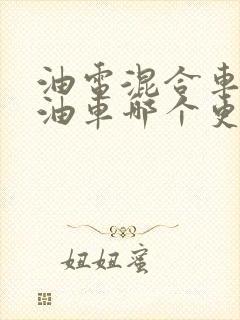 油電混合車
油車哪个更
妞妞蜜